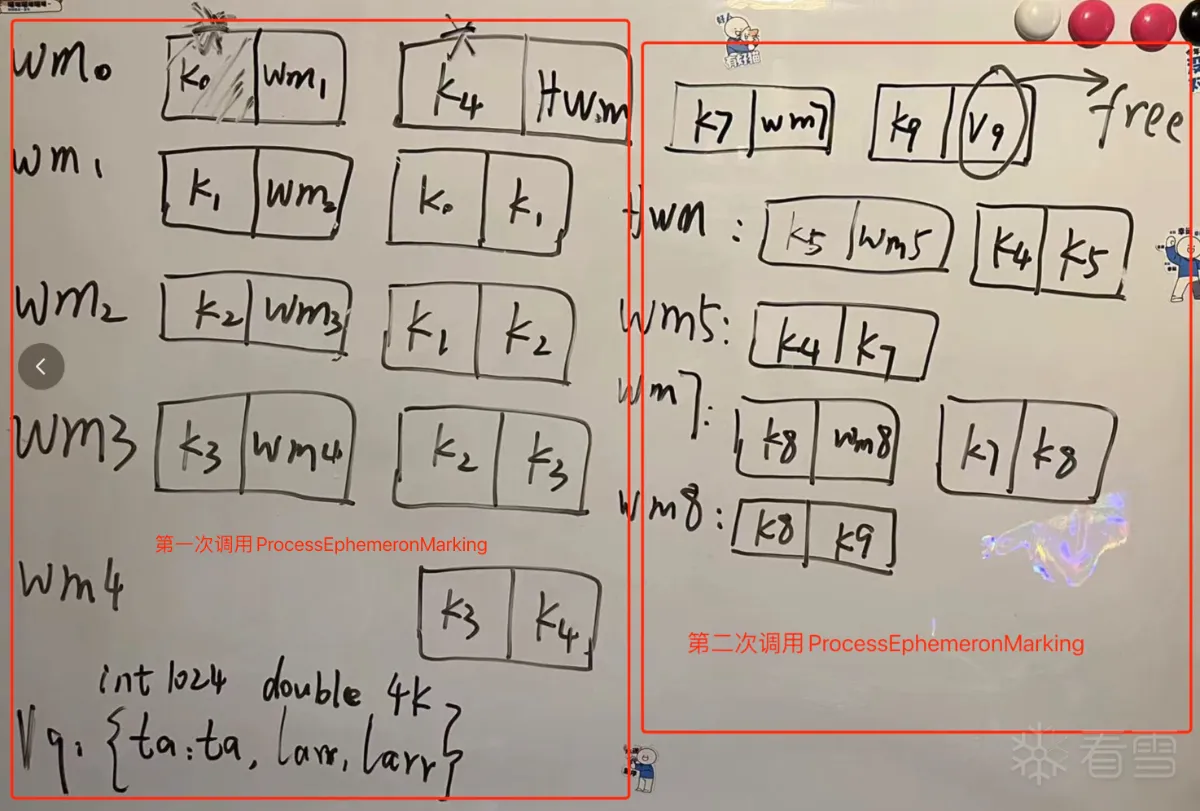 wm0 k0 wm1 k4 Hwm
wm1 k1 wm2 k0 k1
wm2 k2 wm3 k1 k2
wm3 k3 wm4 k2 k3
第一次调用ProcessEphemeronMarking
wm4 k3 k4
int 1024 double 4k
V9: {ta:ta, larr, larr}
k7 wm7 k9 V9 free
Hwm: k5 wm5 k4 k5
wm5: k4 k7
wm7: k8 wm8 k7 k8
wm8: k8 k9
第二次调用ProcessEphemeronMarking
看雪